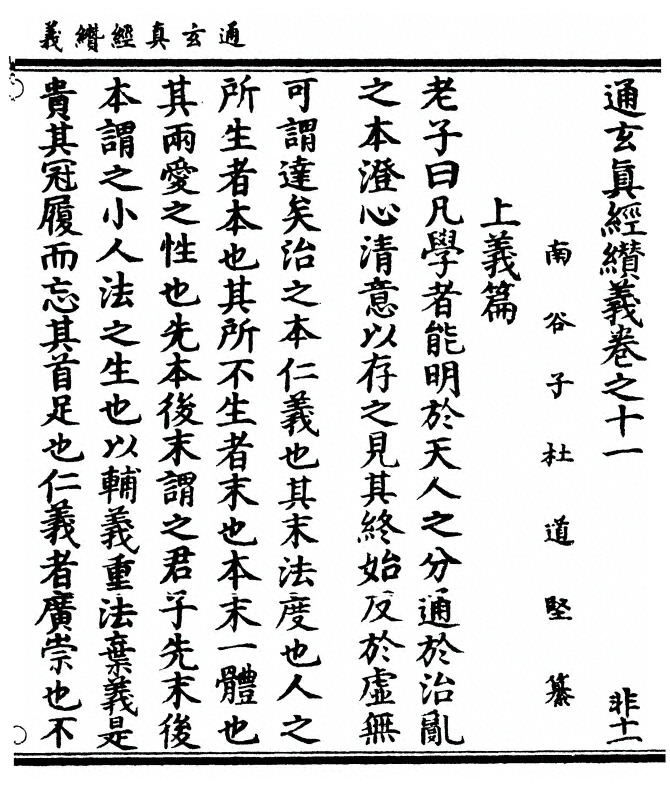 通玄真經纘義
通玄眞經纘義卷之十一
非十一
南谷子杜道堅纂
上義篇
老子曰凡學者能明於天人之分通於治亂
之本澄心清意以存之見其終始反於虛無
可謂達矣治之本仁義也其末法度也人之
所生者本也其所不生者末也本末一體也
其兩愛之性也先本後末謂之君子先末後
本謂之小人法之生也以輔義重法棄義是
貴其冠履而忘其首足也仁義者廣崇也不